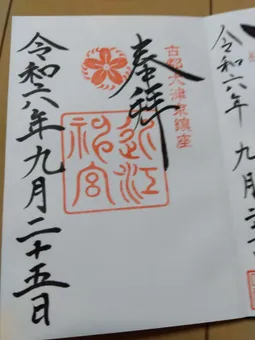 古都大津京鎮座
奉拝
近江
神宮
令和六年九月二十五日
令和六年 九月二